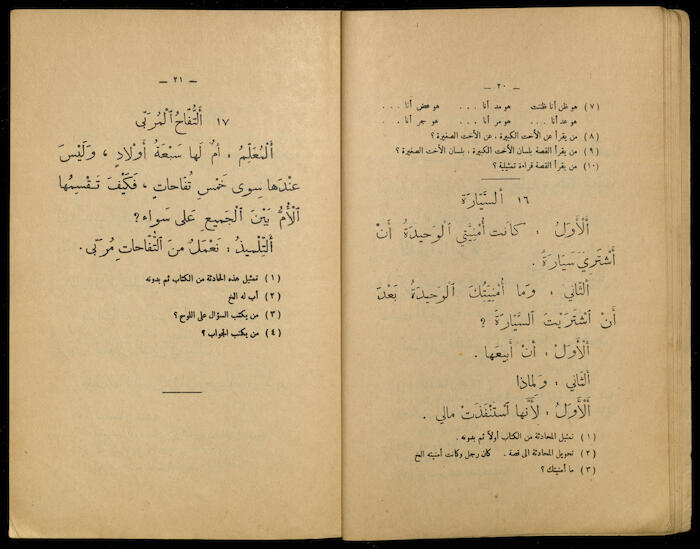 — ٢٠ —
(٧) هو ظن أنا ظننت هو مد أنا . . . هو عض أنا . . .
هو عد أنا . . . هو مر أنا . . . هو جر أنا . . .
(٨) من يقرأ عن الأخت الكبيرة ، عن الأخت الصغيرة ؟
(٩) من يقرأ القصة بلسان الأخت الكبيرة ، بلسان الأخت الصغيرة ؟
(١٠) من يقرأ القصة قراءة تمثيلية ؟
١٦ اَلسَّيَّارَة
اَلْأَوَلُ : كانَت أُمْنِيَّتي الْوَحيدَةُ أَنْ
أَشْتَرِيَ سَيارَةً .
الثاني : وَما أُمْنِيَتُكَ الْوَحيدَةُ بَعْدَ
أَنْ اشْتَرَيْتَ السَّيارَةَ ؟
اَلْأَوَلُ : أَنْ أَبيعَها .
الثاني : وَلماذا
اَلْأَوَلُ : لِأَنَّها اسْتَنْفَذَتْ مالي .
(١) تمثيل المحادثة من الكتاب أولاً ثم بدونه .
(٢) تحويل المحادثة الى قصة . كان رجل وكانت أمنيته الخ
(٣) ما أمنيتك ؟
— ٢١ —
١٧ اَلتُّفاحُ الْمُرَبّى
اَلْمُعَلِّمُ : أمٌ لَها سَبْعَةُ أَوْلادٍ ، وَلَيْسَ
عِنْدَها سِوى خَمْسِ تُفاحاتٍ ، فَكَيْفَ تَقْسِمُها
الْأُمُّ بَيْنَ الْجَميعِ عَلى سَواءٍ ؟
اَلتِّلميذُ : نَعْمَلُ مِنَ التُّفاحاتِ مُرَبّى .
(١) تمثيل هذه المحادثة من الكتاب ثم بدونه
(٢) أب له الخ
(٣) من يكتب السؤال على اللوح ؟
(٤) من يكتب الجواب ؟